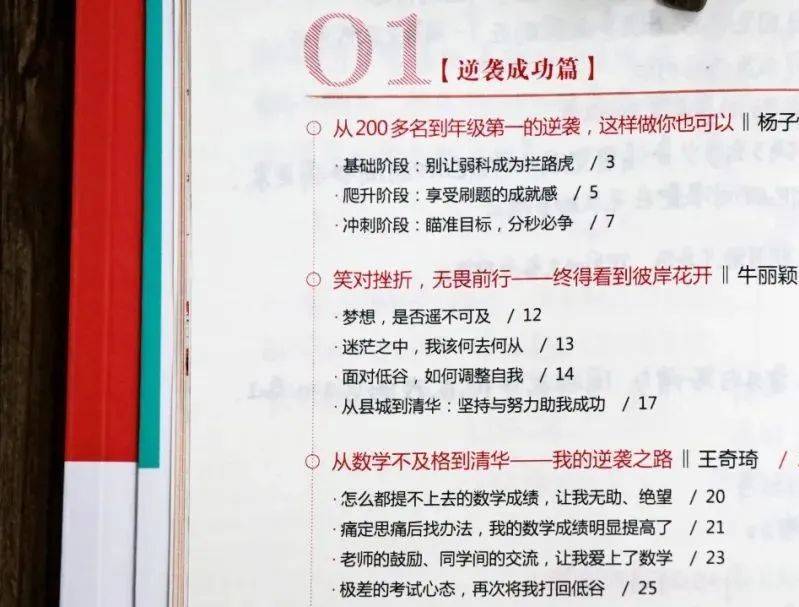 01
【逆袭成功篇】
从200多名到年级第一的逆袭，这样做你也可以 ‖ 杨子
·基础阶段：别让弱科成为拦路虎 / 3
·爬升阶段：享受刷题的成就感 / 5
·冲刺阶段：瞄准目标，分秒必争 / 7
笑对挫折，无畏前行——终得看到彼岸花开 ‖ 牛丽颖
·梦想，是否遥不可及 / 12
·迷茫之中，我该何去何从 / 13
·面对低谷，如何调整自我 / 14
·从县城到清华：坚持与努力助我成功 / 17
从数学不及格到清华——我的逆袭之路 ‖ 王奇琦 /
·怎么都提不上去的数学成绩，让我无助、绝望 / 20
·痛定思痛后找办法，我的数学成绩明显提高了 / 21
·老师的鼓励、同学间的交流，让我爱上了数学 / 23
·极差的考试心态，再次将我打回低谷 / 25